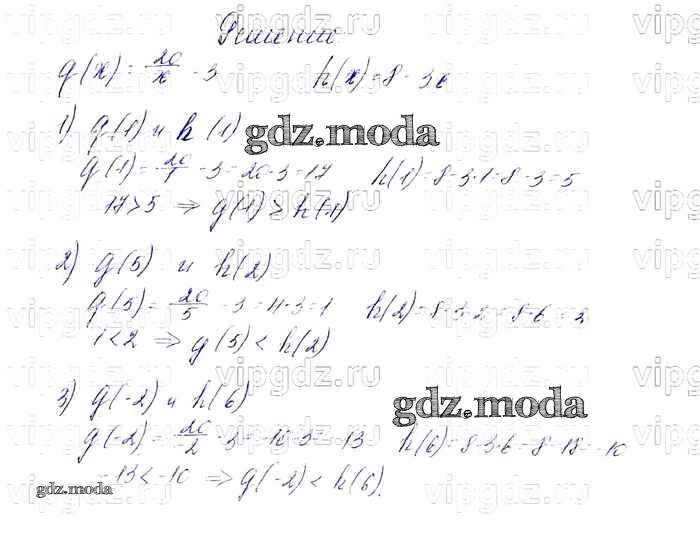 Решение
g(x) = 20/x - 3 h(x) = 8 - 3x
1) g(1) и h(1)
gdz.moda
g(1) = 20/1 - 3 = 20 - 3 = 17 h(1) = 8 - 3·1 = 8 - 3 = 5
17 > 5 ⇒ g(1) > h(1)
2) g(5) и h(2)
g(5) = 20/5 - 3 = 4 - 3 = 1 h(2) = 8 - 3·2 = 8 - 6 = 2
1 < 2 ⇒ g(5) < h(2)
vipgdz.ru
3) g(-2) и h(6)
gdz.moda
g(-2) = 20/-2 - 3 = -10 - 3 = -13 h(6) = 8 - 3·6 = 8 - 18 = -10
-13 < -10 ⇒ g(-2) < h(6).
gdz.moda